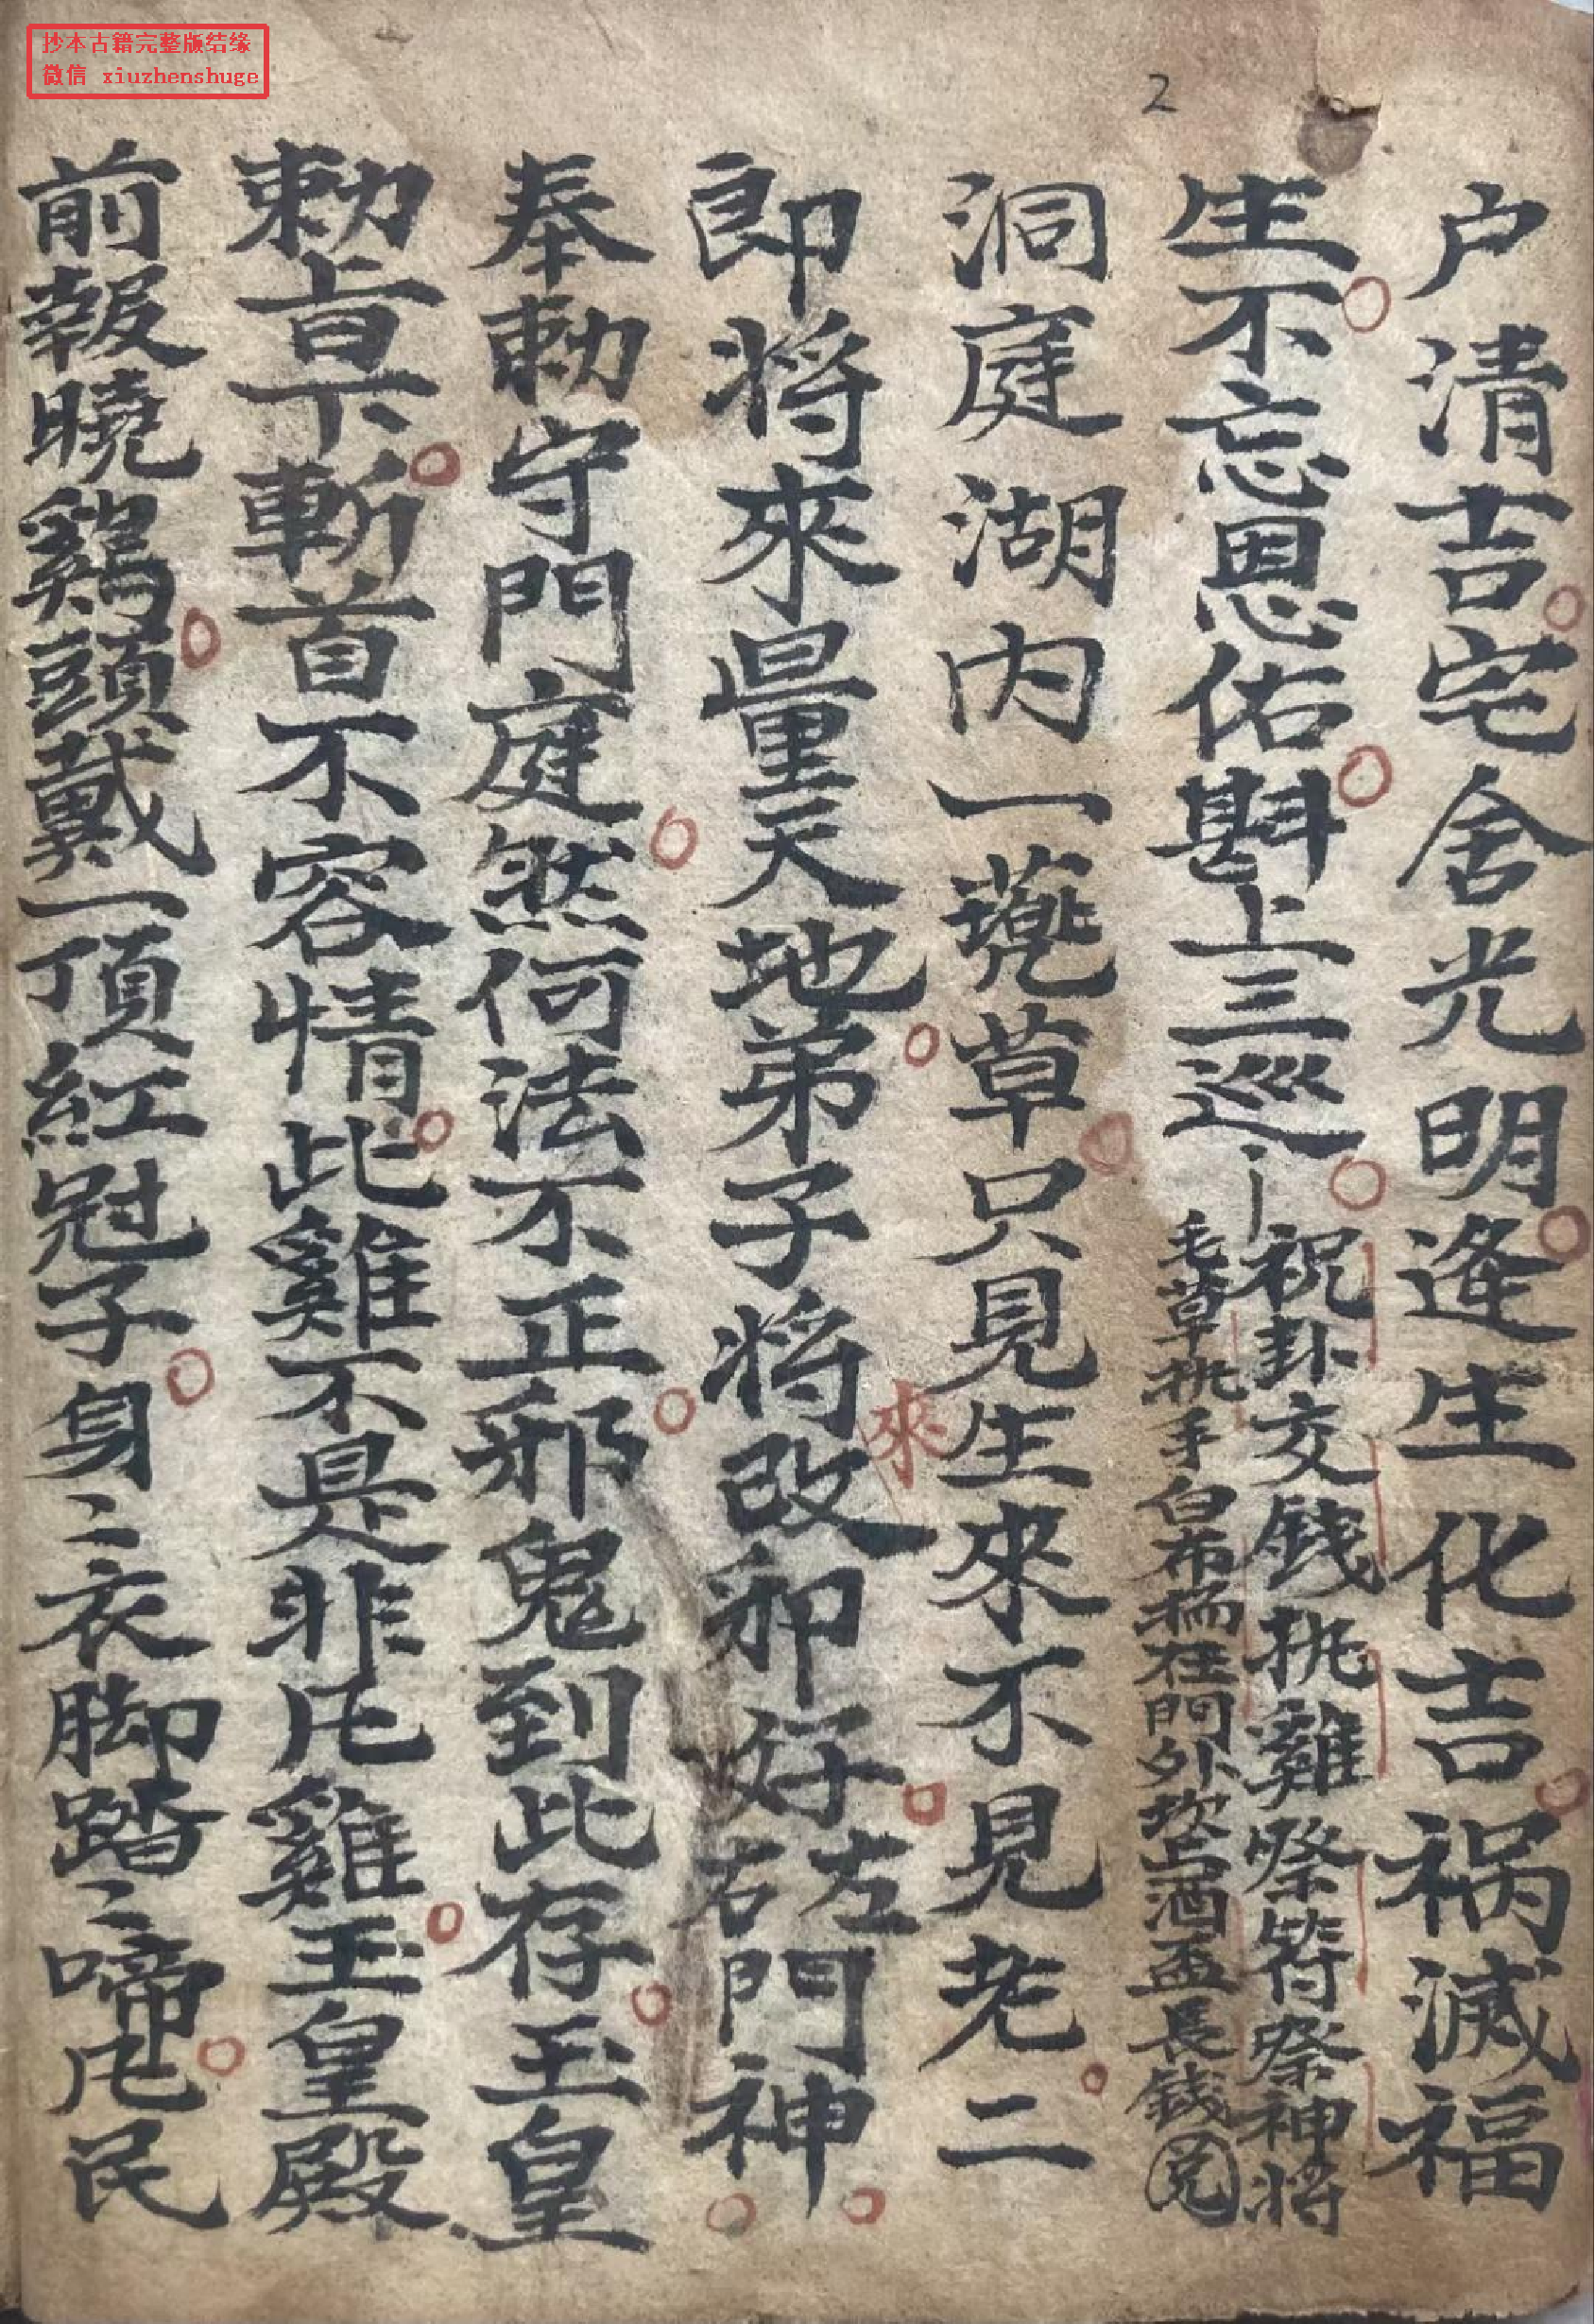 抄本古籍完整版结缘
微信 xiuzhenshuge
2
户清吉宅舍光明逄生化吉祸滅福
生不忘恩佑斟上三巡
祝卦交錢挑雞祭符祭神將
毛草挑手白布 在門外坎上酒盃長錢兑
洞庭湖内一蔸草只見生來不見老二
來
郎將來量天地弟子將改卯好左右門神
奉勅守門庭煞何法不正邪鬼到此存玉皇
勅旨下斬首不容情此雞不是非凡雞王皇殿
前報曉鷄頭戴一頂紅冠子身〻衣脚踏〻啼凡民